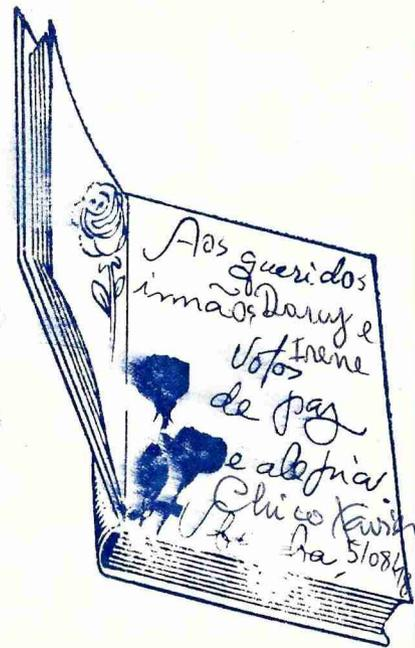 Aos queridos
irmãos Darcy e
Irene
Votos
de paz
e alegria
Chico Xavier
5/08